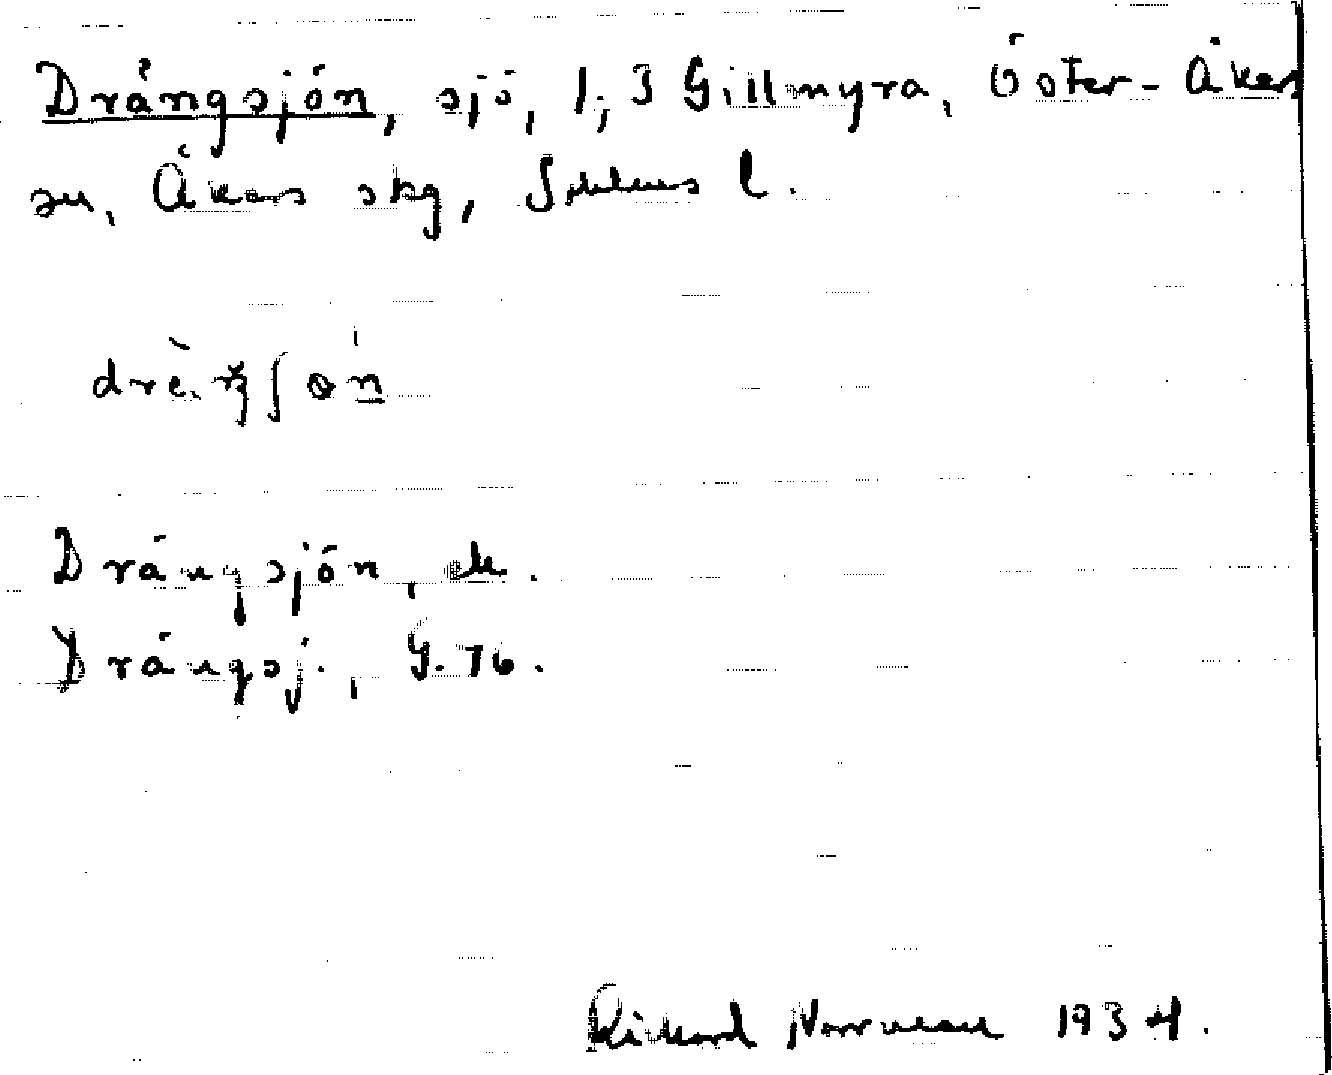 Drängsjön, sjö, 1, 3 Gillmyra, Öster-Åkers
sn, Åkers skg, Sthlms l.
drè.ŋʃøn
Drängsjön, ek.
Drängsj., G. 76.
Richard Norrman 1934.